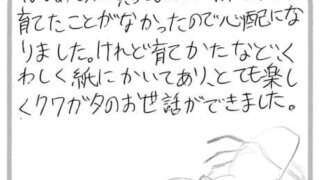 育てたことがなかったので心配にな
りました。けれど育てかたなど、く
わしく紙にかいてあり、とても楽し
くクワガタのお世話ができました。